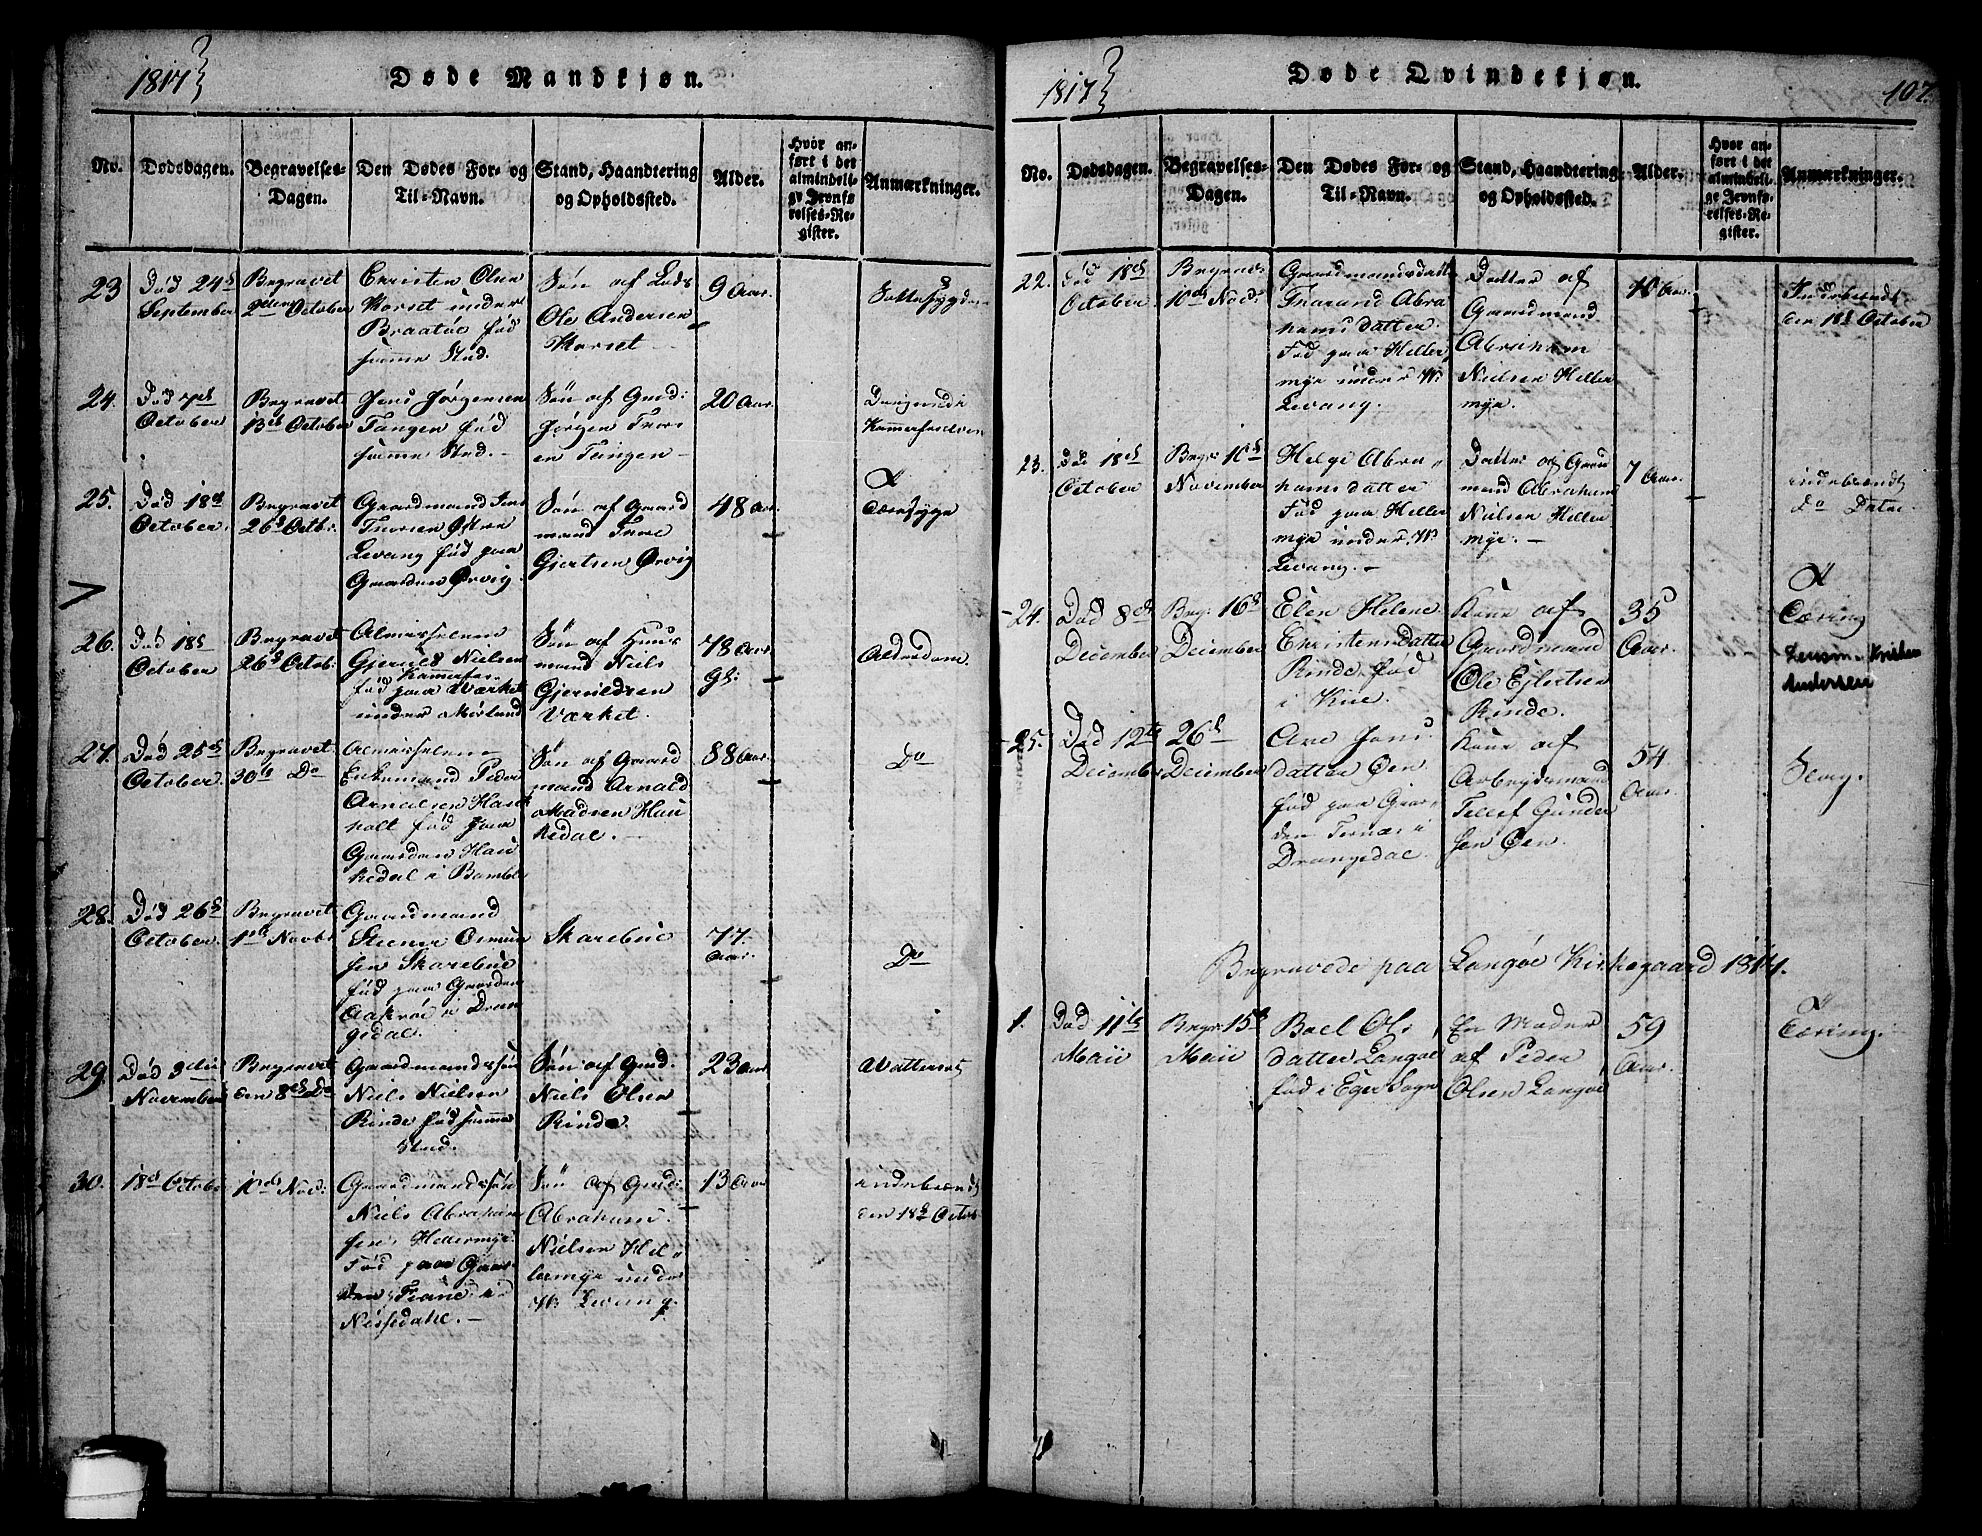 1817
Døde Mandkjøn.
No.
Dødsdagen.
Begravelses-
Dagen.
Den Dødes For- og
Til-Navn.
Stand, Haandtering
og Opholdssted.
Alder.
Hvor an-
ført i det
almindeli-
ge Jevnfø-
relses-Re-
gister.
Anmærkninger.
23
Död 24de
September
Begravet
October
Christen Olsen
Korset under
Braatøe fød
samme Sted.
Sön af Lods
Ole Andersen
Korset
9 Aar.
24.
Död
October
Begravet
13de October
Jens Jörgensen
Tangen fød
samme Sted.
Sön af Gmd:
Jörgen Thors
en Tangen
20 Aar.
25.
Död 18de
October.
Begravet
26de Octb:
Gaardmand Jens
Thorsen Östre
Levang fød paa
Gaarden Ørvig.
Sön af Gaard
mand Thore
Gjertsen Ørvig
48 Aar.
Tæresyge
26.
Död 18de
October
Begravet
26de Octob:
Almisselem
Gjeruld Nielsen
fød paa Værket
under Mørland
Sön af Huus
mand Niels
Gjeruldsen
Værket.
78 Aar
gl:
Alderdom.
27.
Död 25de
October.
Begravet
30te Do
Almisselem
Enkemand Peder
Arnalsen
holt fød paa
Gaarden Hau
kedal i Bamble
Sön af Gaard
mand Arnald
Madsen Hau
kedal.
88 Aar.
Do
28.
Död 26de
October.
Begravet
1ste Novbr
Gaardmand
Steener Osmun
sen Skarebue
fød paa Gaarden
i Dran
gedal.
Skarebue
77.
Aar.
Do
29.
Död 3die
November
Begravet
den 8de Do
Gaardmandssön
Niels Nielsen
Rinde fød samme
Sted.
Sön af Gmd.
Niels Olsen
Rinde.
23 Aar
Vattersot
30.
18de October
10de Nov:
Gaardmandssön
Niels Abraham
sen Hellermyr
Fød paa Gaar-
den i
Nissedahl.
Sön af Gmd:
Abraham
Nielsen Hel-
lermyr under
W: Levang.
13 Aar
indebrændt
den 18de Octob:
1817
Døde Qvindekjøn.
107.
No.
Dødsdagen.
Begravelses-
Dagen.
Den Dødes For- og
Til-Navn.
Stand, Haandtering
og Opholdssted.
Alder.
Hvor an-
ført i det
almindeli-
ge Jevnfø-
relses-Re-
gister.
Anmærkninger.
22.
Död 18de
October
Begravet
10de Nov:
Gaardmandsdatt
Tharand Abra
hamsdatter.
Fød paa Heller-
myr under W:
Levang.
Datter af
Gaardmand
Abraham
Nielsen Heller
myr.
10 Aar.
Indebrændt
den 18de October
23.
Död 18de
October
Begr: 10de
November
Helge Abra-
hamsdatter
Fød paa Heller
myr under W:
Levang.
Datter af Gaard
mand Abraham
Nielsen Heller
myr.
7 Aar.
indebrændt
Do Dato.
24.
Död 8de
December
Beg: 16de
December
Elen Helene
Christensdatter
Rinde, fød
i Kiie.
Kone af
Gaardmand
Ole Ejlertsen
Rinde.
35
Aar.
Tæring
Andersen
25.
Död 12te
December
26de
December
Ave Jens
datter Øen
fød paa Gaar-
den i
Drangedal.
Kone af
Arbeydsmand
Tellef Gunder
sen Øen.
54
Aar.
Begravede paa Langøe Kirkegaard 1817.
1.
Död 11te
Maii
Begr: 15de
Maii
Boel Ols
datter Langøe
fød i Eger Sogn
En Moder
af Peder
Olsen Langøe
59
Aar.
Tæring.